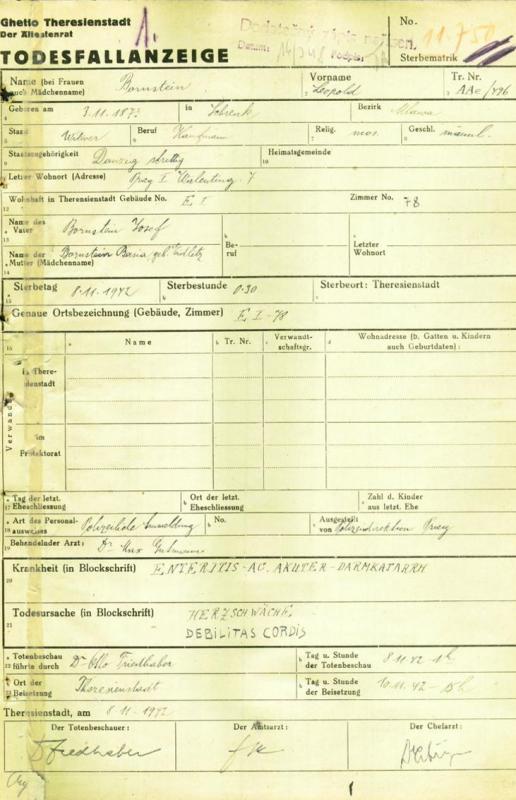 Ghetto Theresienstadt
Der Ältestenrat
TODESFALLANZEIGE
1.
Dodatečný zápis
Datum: Podpis:
No. 11.750
Sterbematrik
Name (bei Frauen auch Mädchenname) Bornstein
Vorname Leopold
Tr. Nr. AAe/496
Geboren am 3.11.1873 in
Bezirk Mlawa
Stand Witwer Beruf Kaufmann Relig. mos. Geschl. männl.
Staatszugehörigkeit Danzig
Heimatsgemeinde
Letzter Wohnort (Adresse) Prag I 7
Wohnhaft in Theresienstadt Gebäude No. E I Zimmer No. 78
Name des Vater Bornstein Josef
Name der Mutter (Mädchenname) Bornstein geb.
Beruf
Letzter Wohnort
Sterbetag 8.11.1942 Sterbestunde 0.30 Sterbeort: Theresienstadt
Genaue Ortsbezeichnung (Gebäude, Zimmer) E I-78
Name Tr. Nr. Verwandtschaftsgr. Wohnadresse (b. Gatten u. Kindern auch Geburtdaten):
Verwandte
in Theresienstadt
im Protektorat
Tag der letzt. Eheschliessung
Ort der letzt. Eheschliessung
Zahl d. Kinder aus letzt. Ehe
Art des Personalausweises
No.
Ausgestellt von Polizeidirektion Prag
Behandelnder Arzt: Dr. Max Gutmann
Krankheit (in Blockschrift) ENTERITIS-AC. AKUTER-DARMKATARRH
Todesursache (in Blockschrift) HERZSCHWÄCHE
DEBILITAS CORDIS
Totenbeschau führte durch Dr Otto Friedhaber
Tag u. Stunde der Totenbeschau 8.11.42
Ort der Beisetzung Theresienstadt
Tag u. Stunde der Beisetzung 10.11.42
Theresienstadt, am 8.11.1942
Der Totenbeschauer: Der Amtsarzt: Der Chefarzt:
Friedhaber